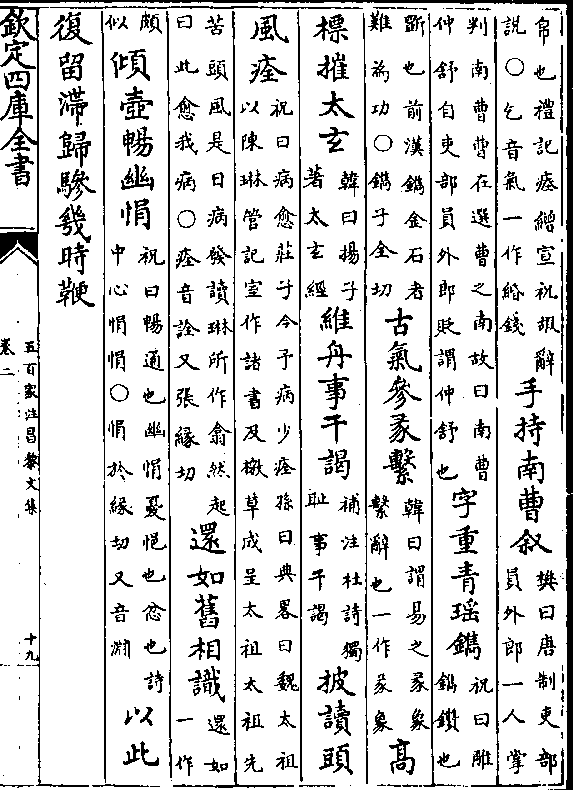 帛也禮記瘞繒宣祝嘏辭
説○乞音氣一作給錢
手持南曹叙
樊曰唐制吏部
員外郎一人掌
判南曹曹在選曹之南故曰南曹
仲舒自吏部員外郎貶謂仲舒也
字重青瑶鐫
祝曰雕
鐫鑽也
斵也前漢鐫金石者
難為功○鐫子全切
古氣參彖繫
韓曰謂易之彖象
繫辭也一作彖象
高
標摧太玄
韓曰揚子
著太玄經
維舟事干謁
補注杜詩獨
恥事干謁
披讀頭
風痊
祝曰病愈莊子今予病少痊孫曰典畧曰魏太祖
以陳琳管記室作諸書及檄草成呈太祖太祖先
苦頭風是日病發讀琳所作翕然起
曰此愈我病○痊音詮又張緣切
還如舊相識
還如
一作
頗
似
傾壺暢幽悁
祝曰暢適也幽悁憂悒也忿也詩
中心悁悁○悁於緣切又音淵
以此
復留滯歸驂幾時鞭
欽定四庫全書
五百家注昌黎文集
卷二
十九